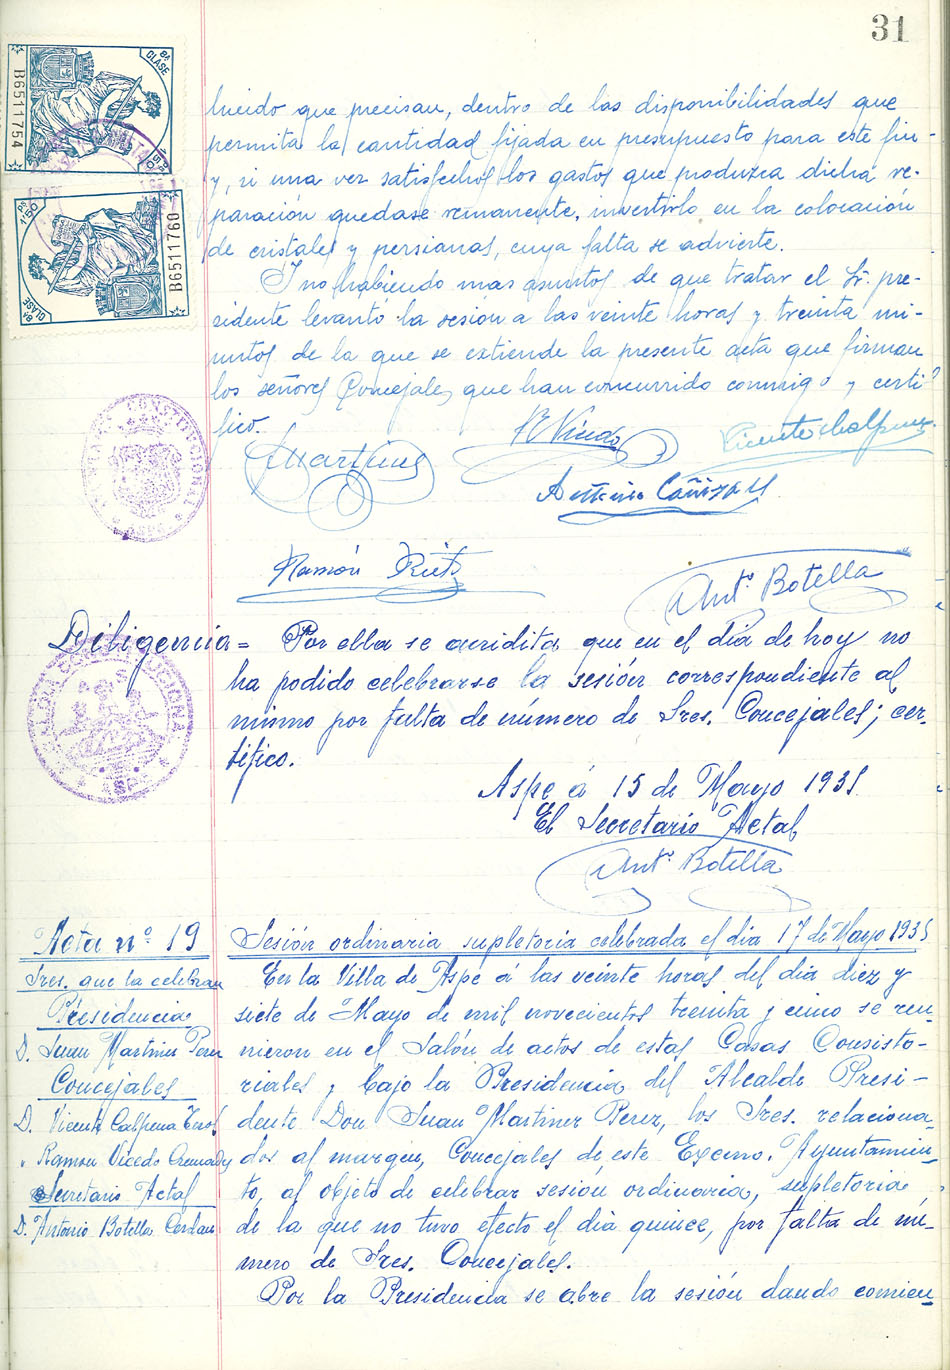 31
8ª CLASE
B6511754
lucido que precisan, dentro de las disponibilidades que
permita la cantidad fijada en presupuesto para este fin
y, si una vez satisfechos los gastos que produzca dicha re-
paración quedase remanente, invertirlo en la colocación
de cristales y persianas, cuya falta se advierte.
1'50
8ª CLASE
B6511760
Y no habiendo mas asuntos de que tratar el Sr. pre-
sidente levantó la sesión a las veinte horas y treinta mi-
nutos de la que se extiende la presente acta que firman
los señores Concejales que han concurrido conmigo y certi-
fico.
CONSTITUCIONAL
ASPE
J Martinez
R Vicedo
Vicente Calpena
Antonio Cañizares
Ramón Prieto
Antº Botella
Diligencia = Por ella se acridita que en el día de hoy no
ha podido celebrarse la sesión correspondiente al
mismo por falta de número de Sres. Concejales; cer-
tifico.
ALCALDIA CONSTITUCIONAL
ASPE
Aspe á 15 de Mayo 1935
El Secretario Actal
Antº Botella
Acta nº 19
Sres. que la celebran
Presidencia
D. Juan Martinez Perez
Concejales
D. Vicente Calpena
" Ramon Vicedo
Secretario Actal
D. Antonio Botella Cerdan
Sesión ordinaria supletoria celebrada el dia 17 de Mayo 1935
En la Villa de Aspe á las veinte horas del dia diez y
siete de Mayo de mil novecientos treinta y cinco se reu-
nieron en el Salón de actos de estas Casas Consisto-
riales y bajo la Presidencia del Alcalde Presi-
dente Don Juan Martinez Perez, los Sres. relaciona-
dos al margen, Concejales de este Excmo. Ayuntamien-
to, al objeto de celebrar sesion ordinaria, supletoria
de la que no tuvo efecto el dia quince, por falta de nú-
mero de Sres. Concejales.
Por la Presidencia se abre la sesión dando comien-